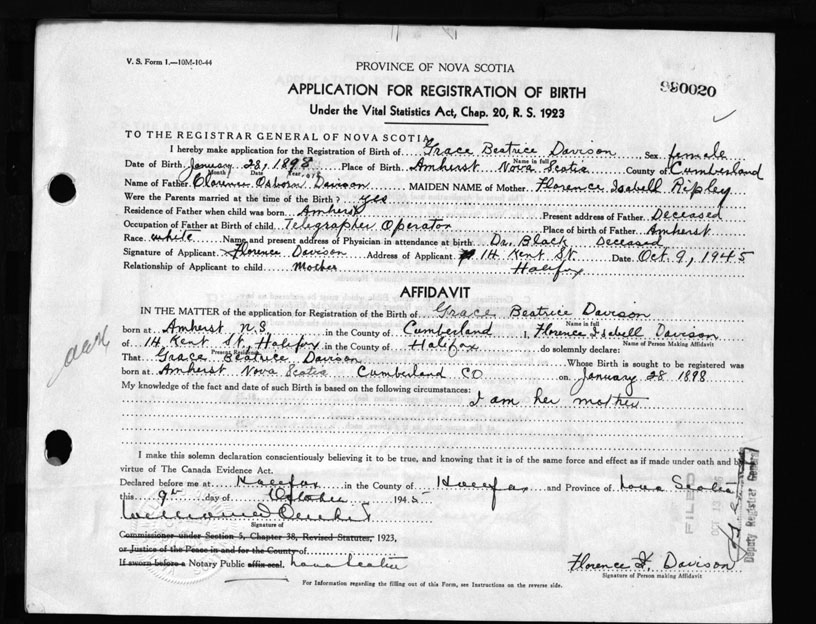 V. S. Form 1.—10M-10-44
PROVINCE OF NOVA SCOTIA
990020
APPLICATION FOR REGISTRATION OF BIRTH
Under the Vital Statistics Act, Chap. 20, R. S. 1923
TO THE REGISTRAR GENERAL OF NOVA SCOTIA
I hereby make application for the Registration of Birth of Grace Beatrice Davison Sex female
Name in full
Date of Birth January 28, 1898 Place of Birth Amherst Nova Scotia County of Cumberland
Month Date Year
Name of Father Clarence Osborn Davison MAIDEN NAME of Mother Florence Isabell Ripley
Were the Parents married at the time of the Birth? yes
Residence of Father when child was born Amherst Present address of Father Deceased
Occupation of Father at Birth of child Telegrapher Operator Place of birth of Father Amherst
Race white Name and present address of Physician in attendance at birth Dr. Black Deceased
Signature of Applicant Florence Davison Address of Applicant 14 Kent St. Date Oct 9, 1945
Relationship of Applicant to child Mother Halifax
AFFIDAVIT
IN THE MATTER of the application for Registration of the Birth of Grace Beatrice Davison
Name in full
born at Amherst N.S. in the County of Cumberland I, Florence Isabell Davison
Name of Person Making Affidavit
of 14 Kent St, Halifax in the County of Halifax do solemnly declare:
Present Residence
That Grace Beatrice Davison Whose Birth is sought to be registered was
born at Amherst Nova Scotia Cumberland CO on January 28 1898
My knowledge of the fact and date of such Birth is based on the following circumstances:
I am her mother
I make this solemn declaration conscientiously believing it to be true, and knowing that it is of the same force and effect as if made under oath and by
virtue of The Canada Evidence Act.
Declared before me at Halifax in the County of Halifax and Province of Nova Scotia
this 9th day of October 1945
Signature of
Commissioner under Section 5, Chapter 38, Revised Statutes, 1923,
or Justice of the Peace in and for the County of
If sworn before a Notary Public affix seal. Nova Scotia
Florence I. Davison
Signature of Person making Affidavit
For Information regarding the filling out of this Form, see Instructions on the reverse side.
FILED
Deputy Registrar General